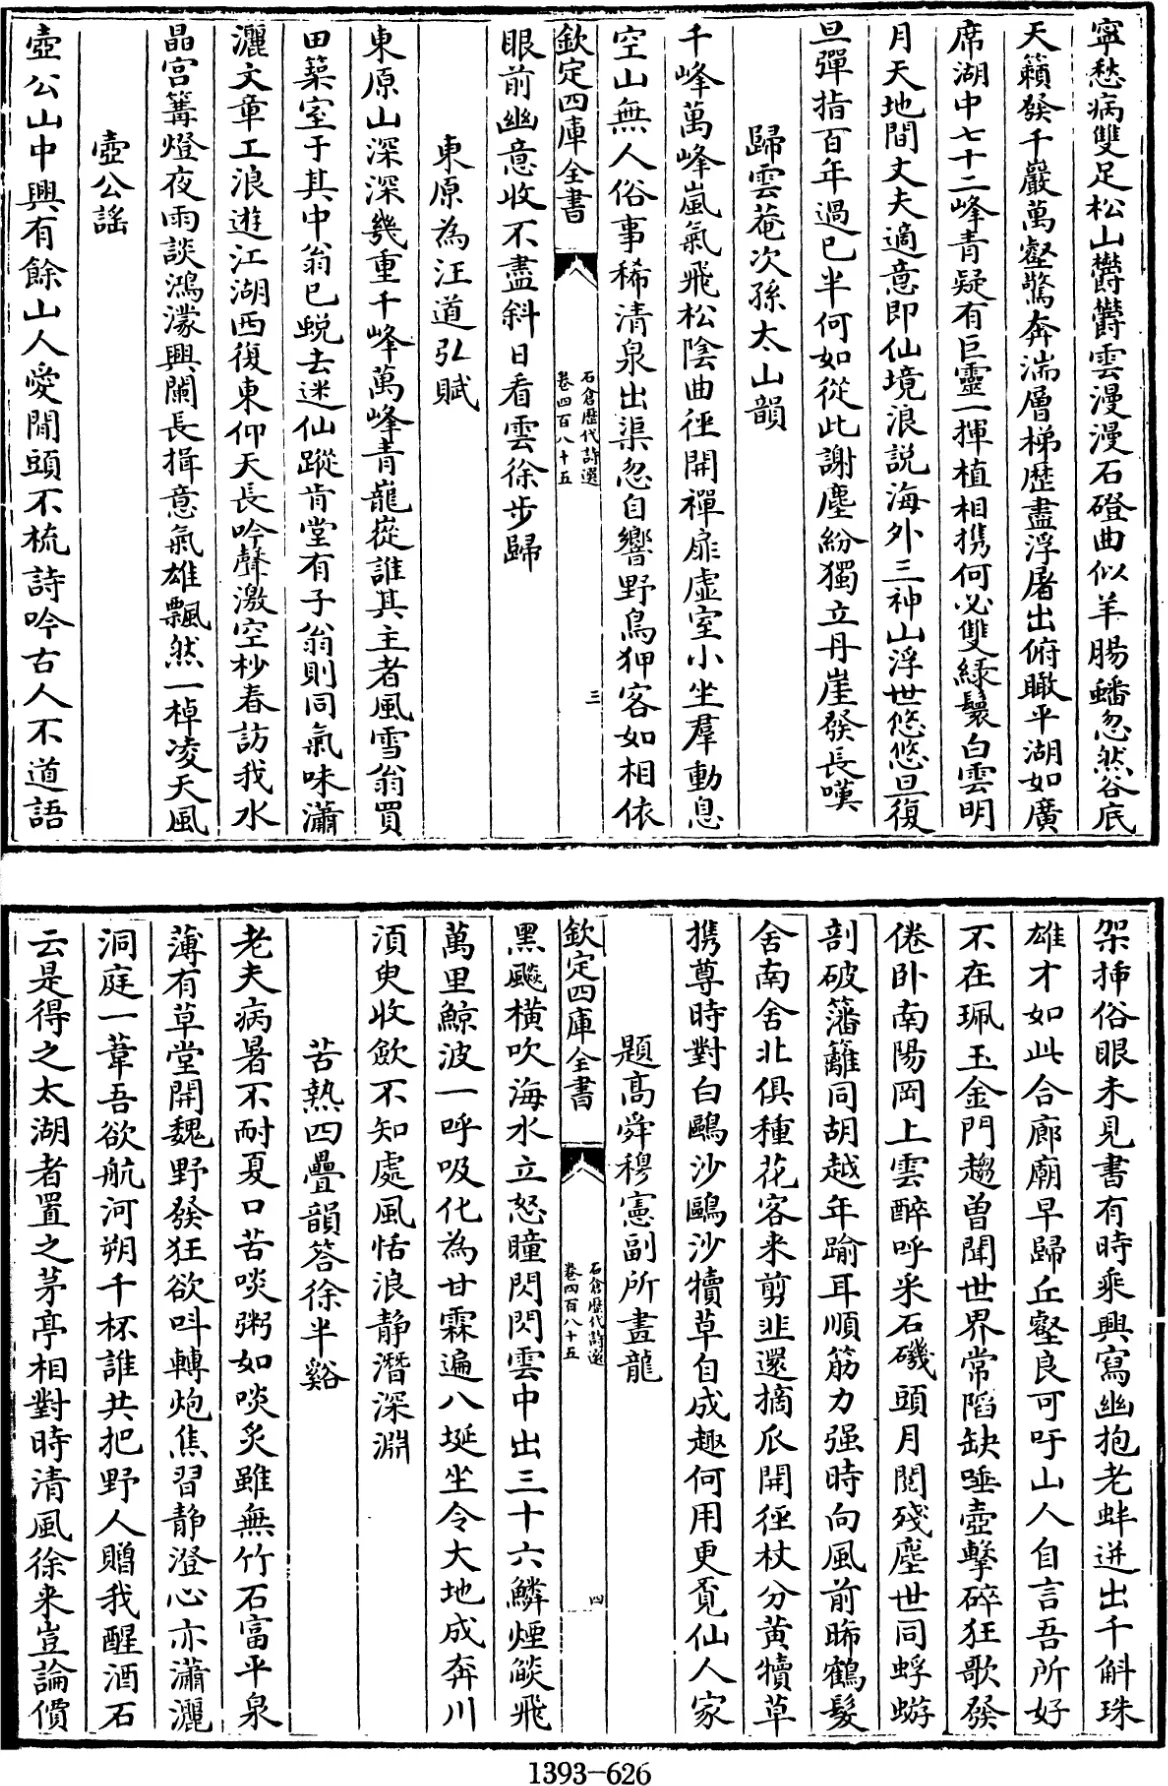 寧愁病雙足松山欝欝雲漫漫石磴曲似羊腸蟠忽然谷底
天籟發千巖萬壑驚奔湍層梯歷盡浮屠出俯瞰平湖如廣
席湖中七十二峰青疑有巨靈一揮植相携何必雙綠鬟白雲明
月天地間丈夫適意即仙境浪説海外三神山浮世悠悠旦復
旦彈指百年過已半何如從此謝塵紛獨立丹崖發長嘆
歸雲菴次孫太山韻
千峰萬峰嵐氣飛松陰曲徑開禪扉虛室小坐羣動息
空山無人俗事稀清泉出渠忽自響野鳥狎客如相依
欽定四庫全書
石倉歷代詩選
卷四百八十五
三
眼前幽意收不盡斜日看雲徐步歸
東原為汪道弘賦
東原山深深幾重千峰萬峰青巃嵷誰其主者風雪翁買
田築室于其中翁已蛻去迷仙蹤肯堂有子翁則同氣味瀟
灑文章工浪遊江湖西復東仰天長吟聲激空杪春訪我水
晶宫篝燈夜雨談鴻濛興闌長揖意氣雄飄然一棹凌天風
壺公謠
壺公山中興有餘山人愛閒頭不梳詩吟古人不道語
架揷俗眼未見書有時乘興寫幽抱老蚌迸出千斛珠
雄才如此合廊廟早歸丘壑良可吁山人自言吾所好
不在珮玉金門趨曾聞世界常陷缺唾壺擊碎狂歌發
倦卧南陽岡上雲醉呼米石磯頭月閲殘塵世同蜉蝣
剖破藩籬同胡越年踰耳順筋力强時向風前晞鶴髮
舍南舍北俱種花客来剪韭還摘瓜開徑杖分黄犢草
携尊時對白鷗沙鷗沙犢草自成趣何用更覓仙人家
題高舜穆憲副所畫龍
欽定四庫全書
石倉歷代詩選
卷四百八十五
四
黑颷横吹海水立怒瞳閃閃雲中出三十六鱗煙燄飛
萬里鯨波一呼吸化為甘霖遍八埏坐令大地成奔川
湏臾收歛不知處風恬浪静潛深淵
苦熱四疊韻答徐半谿
老夫病暑不耐夏口苦啖粥如啖炙雖無竹石富平泉
薄有草堂開魏野發狂欲呌轉炮焦習静澄心亦瀟灑
洞庭一葦吾欲航河朔千杯誰共把野人贈我醒酒石
云是得之太湖者置之茅亭相對時清風徐来豈論價
1393-626